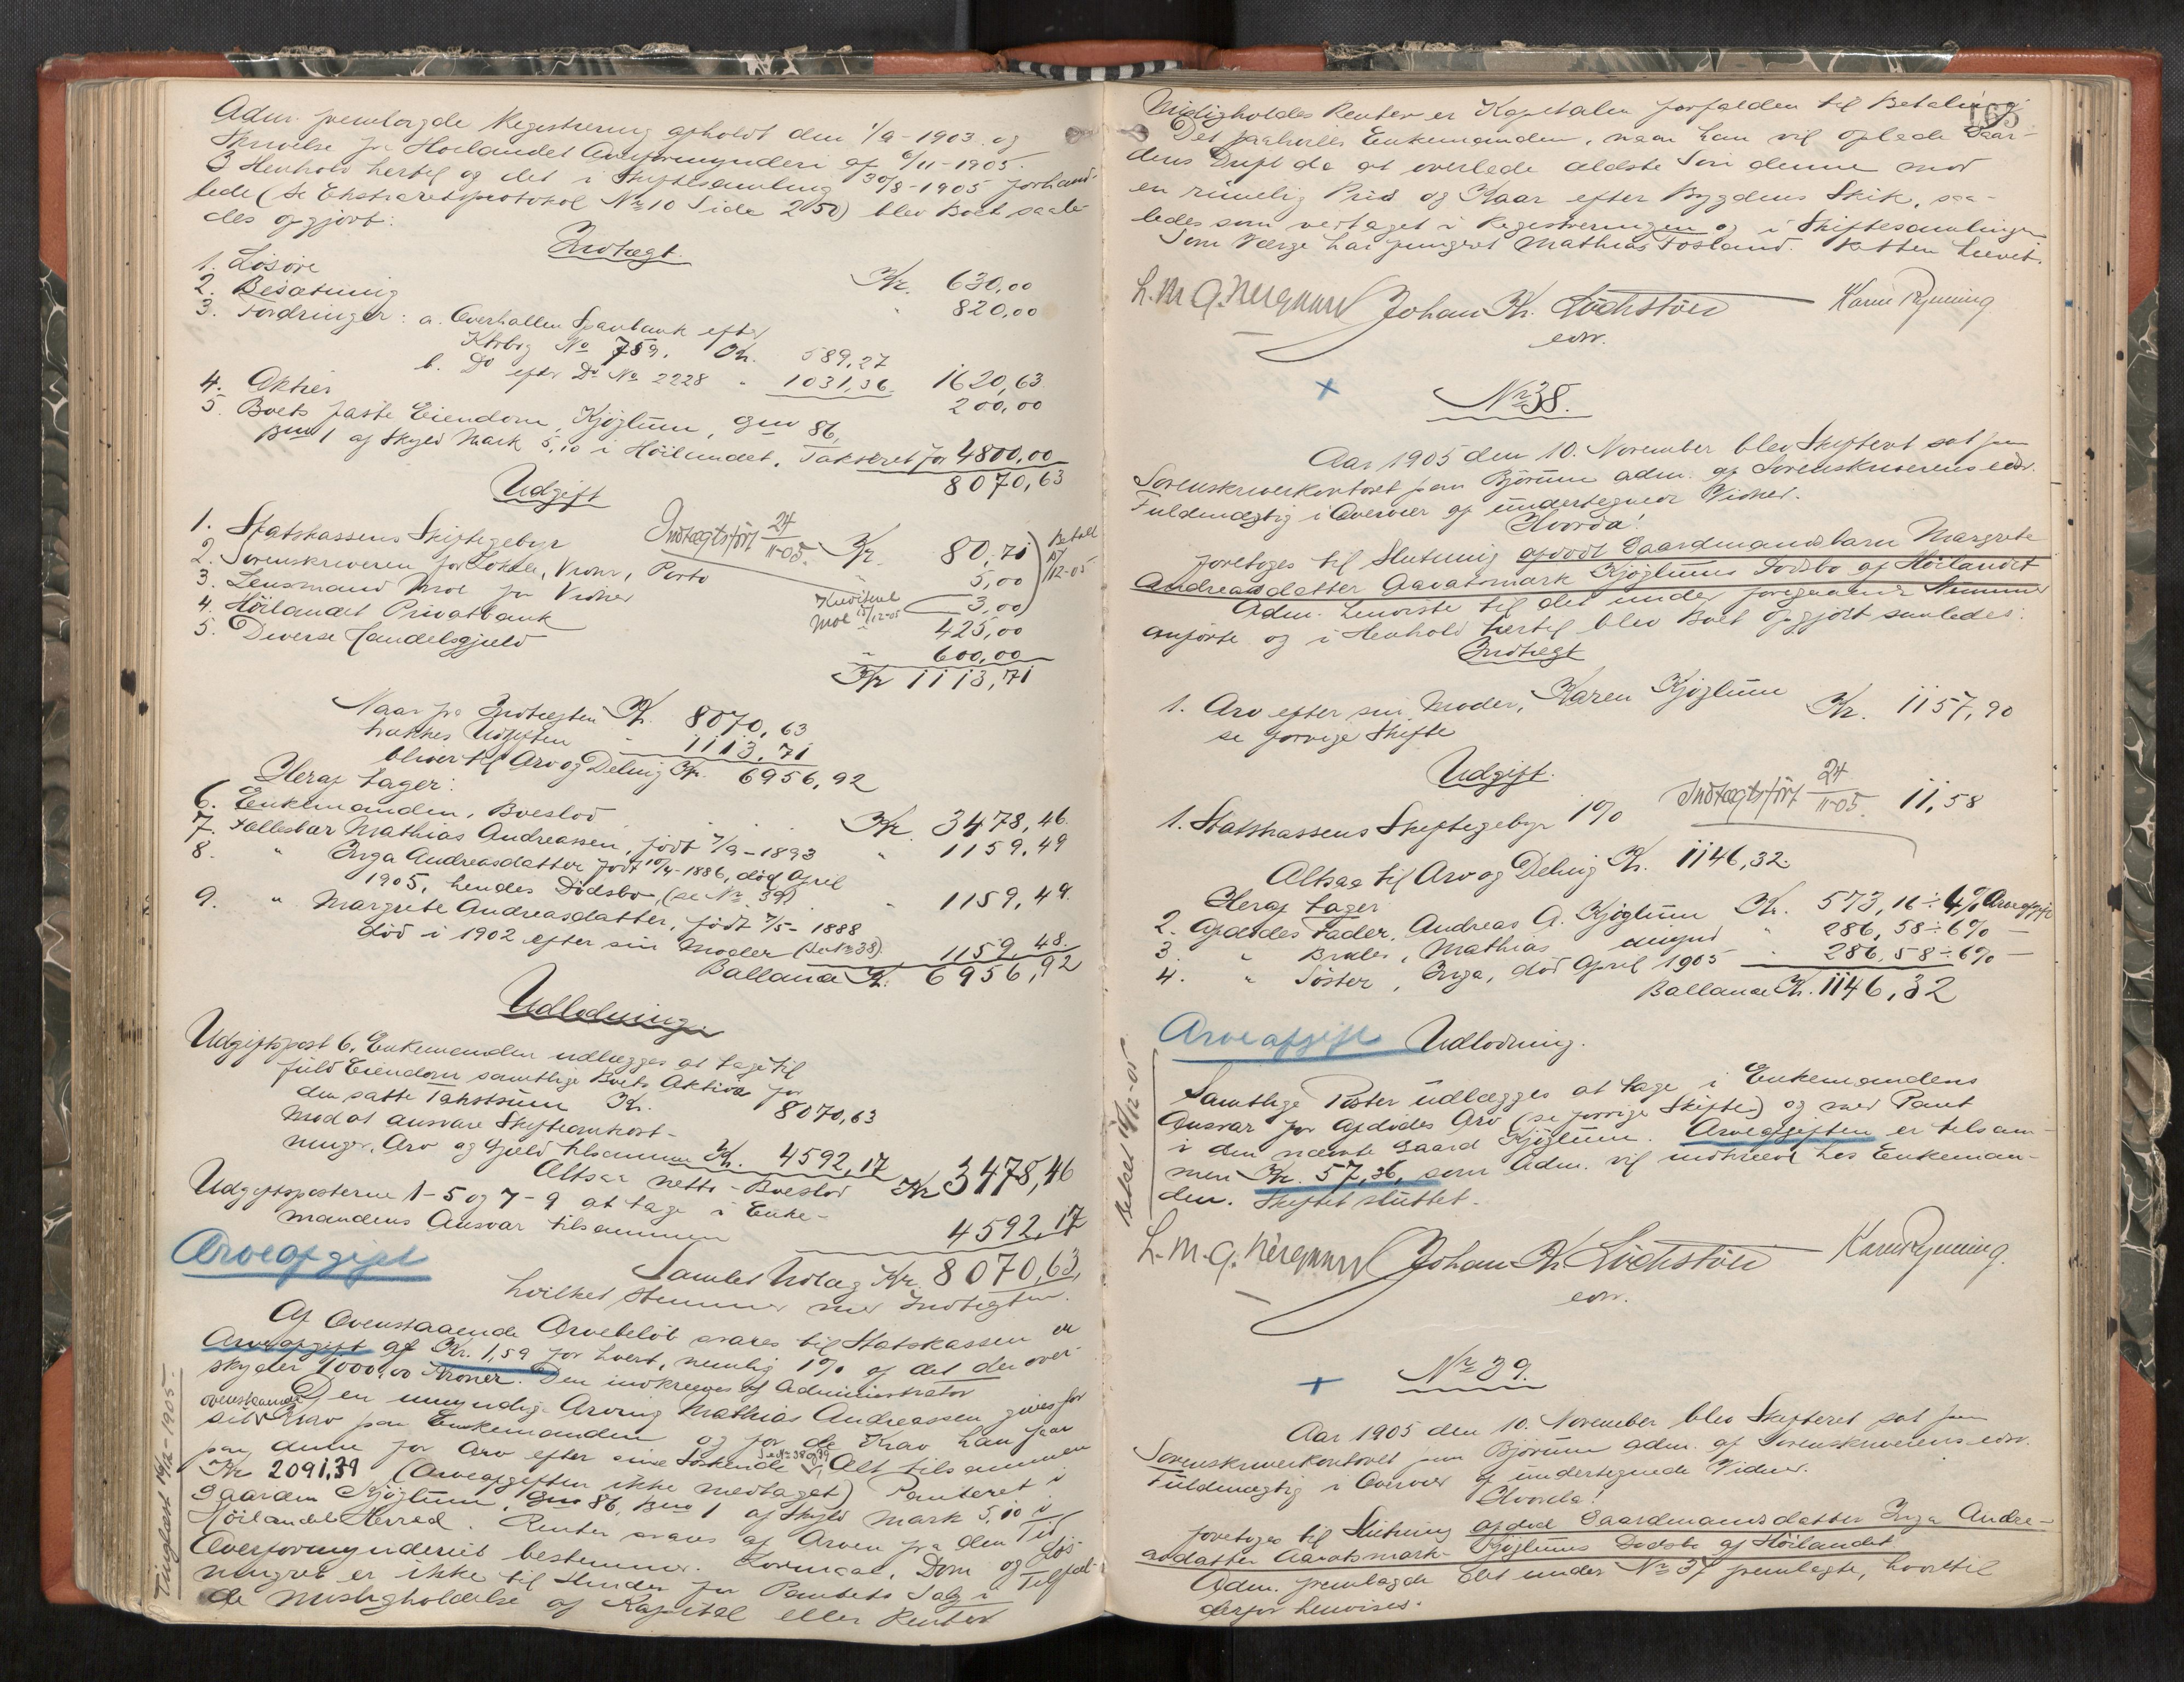 Adm. fremlagde Registrering afholdt den 1/9-1903 og
Skrivelse fra Höilandet Overformynderi af 6/11-1905.
I Henhold hertil og det i Skiftesamling 30/8-1905 forhand-
lede (se Ekstraretsprotokol No 10 Side 250) blev Boet saale-
des opgjort:
Indtægt.
1. Lösöre Kr. 630,00
2. Besætning " 820,00
3. Fordringer: a. Overhallen Sparebank efter
Ktrbog No 759. Kr. 589,27
b. Do efter Do No 2228 " 1031,36 1620,63
4. Aktier 200,00
5. Boets faste Eiendom, Kjöglum, gno 86,
Bno 1 af Skyld Mark 5,10 i Höilandet, Takseret for 4800,00
8070,63
Udgift
1. Statskassens Skiftegebyr Indtægtsført 24/11-05. Kr. 80,71 Betalt
2. Sorenskriveren for Lokale, Vidner, Porto " 5,00 /12-05
3. Lensmand Moe for Vidner Kvitteret Moe 15/12-05 3,00
4. Höilandet Privatbank 425,00
5. Diverse Handelsgjæld " 600,00
Kr 1113,71
Naar fra Indtægten Kr. 8070,63
trækkes Udgiften " 1113,71
bliver til Arv og Deling Kr. 6956,92
Heraf tager:
6. Enkemanden, Boeslod Kr. 3478,46
7. Fællesbar Mathias Andreassen, född 7/9-1893 " 1159,49
8. " Inga Andreasdatter född 10/4-1886, död April
1905, hendes Dödsbo, (se No 39) " 1159,49.
9. " Margrete Andreasdatter, född 7/5-1888
död i 1902 efter sin Moder (se No 38) 1159,48.
Ballance Kr. 6956,92
Udlodning.
Udgiftspost 6. Enkemanden udlægges at tage til
fuld Eiendom samtlige Boets Aktiva for
den satte Takstsum Kr. 8070,63
mod at ansvare Skifteomkost-
ninger, Arv og Gjæld tilsammen Kr. 4592,17
Altsaa netto-Boeslod Kr 3478,46
Udgiftsposterne 1-5 og 7-9 at tage i Enke-
mandens Ansvar tilsammen 4592,17
Arveafgift
Samlet Udlæg Kr. 8070,63,
hvilket stemmer med Indtægten.
Af Ovenstaaende Arvebelöb svares til Statskassen en
Arveafgift af Kr. 1,59 for hvert, nemlig 1% af det der over-
skyder 1000,00 Kroner. Den indkræves af Administrator
Den umyndige Arving Mathias Andreassen gives for
ovenstaaende
sit Krav paa Enkemanden og for de Krav han faar
paa denne for Arv efter sine Söskende, se No 38 og 39 Alt tilsammen
Kr 2091,39 (Arveafgiften ikke medtaget) Panteret i
Gaarden Kjöglum, Gno 86, Bno 1 af Skyld Mark 5,10 i
Höilandet Herred. Renter svares af Arven fra den Tid
Overformynderiet bestemmer. Lovmaal, Dom og Lös-
ningsret er ikke til Hinder for Pantets Salg i Tilfæl-
de Misligholdelse af Kapital eller Renter
Tinglæst 14/12-1905.
165
Misligholdes Renten er Kapitalen forfalden til Betaling
Det paahviler Enkemanden, naar han vil oplade Gaar-
dens Drift da at overlade ældste Sön denne mod
en rimelig Pris og Kaar efter Bygdens Skik, saa-
ledes som vedtaget i Registreringen og i Skiftesamlingen
Som Værge har fungeret Mathias Fosland. Retten hævet.
Johan Kr. Löchstöer Karen Ryening
edsv.
No 38.
Aar 1905 den 10. November blev Skifteret sat paa
Sorenskriverkontoret paa Björum adm. af Sorenskriverens edsv.
Fuldmægtig i Overvær af undertegnede Vidner.
Hvorda!
foretoges til Slutning afdöd Gaardmandsbarn Margrete
Andreasdatter Aavatsmark Kjöglums Dödsbo af Höilandet
Adm. henviste til det under foregaaende Nummer
anförte og i Henhold hertil blev Boet opgjort saaledes:
Indtægt
1. Arv efter sin Moder, Karen Kjöglum
se forrige Skifte Kr. 1157,90
Udgift.
1. Statskassens Skiftegebyr 1% Indtægtsført 24/11-05. 11,58
Altsaa til Arv og Deling Kr. 1146,32.
Heraf tager
2. Afdödes Fader, Andreas A. Kjöglum Kr. 573,16 ÷ 4% Arveafgift
3. " Broder, Mathias " 286,58 ÷ 6% —
4. " Söster, Inga, död April 1905 " 286,58 ÷ 6% —
Ballance Kr. 1146,32
Arveafgift Udlodning.
Samtlige Poster udlægges at tage i Enkemandens
Ansvar for Afdödes Arv (se forrige Skifte) og med Pant
i den nævnte Gaard Kjöglum. Arveafgiften er tilsam-
men Kr. 57,36, som Adm. vil indkræve hos Enkeman-
den. Skiftet sluttet.
Betalt 14/12-05
Johan Kr. Löchstöer Karen Ryening.
edsv.
No 39.
Aar 1905 den 10. November blev Skifteret sat paa
Sorenskriverkontoret paa Björum adm. af Sorenskriverens edsv.
Fuldmægtig i Overvær af undertegnede Vidner.
Hvorda!
foretoges til Slutning afdöd Gaardmandsdatter Inga Andre-
asdatter Aavatsmark Kjöglums Dödsbo af Höilandet
Adm. fremlagde det under No 37 fremlagte, hvortil
derfor henvises.